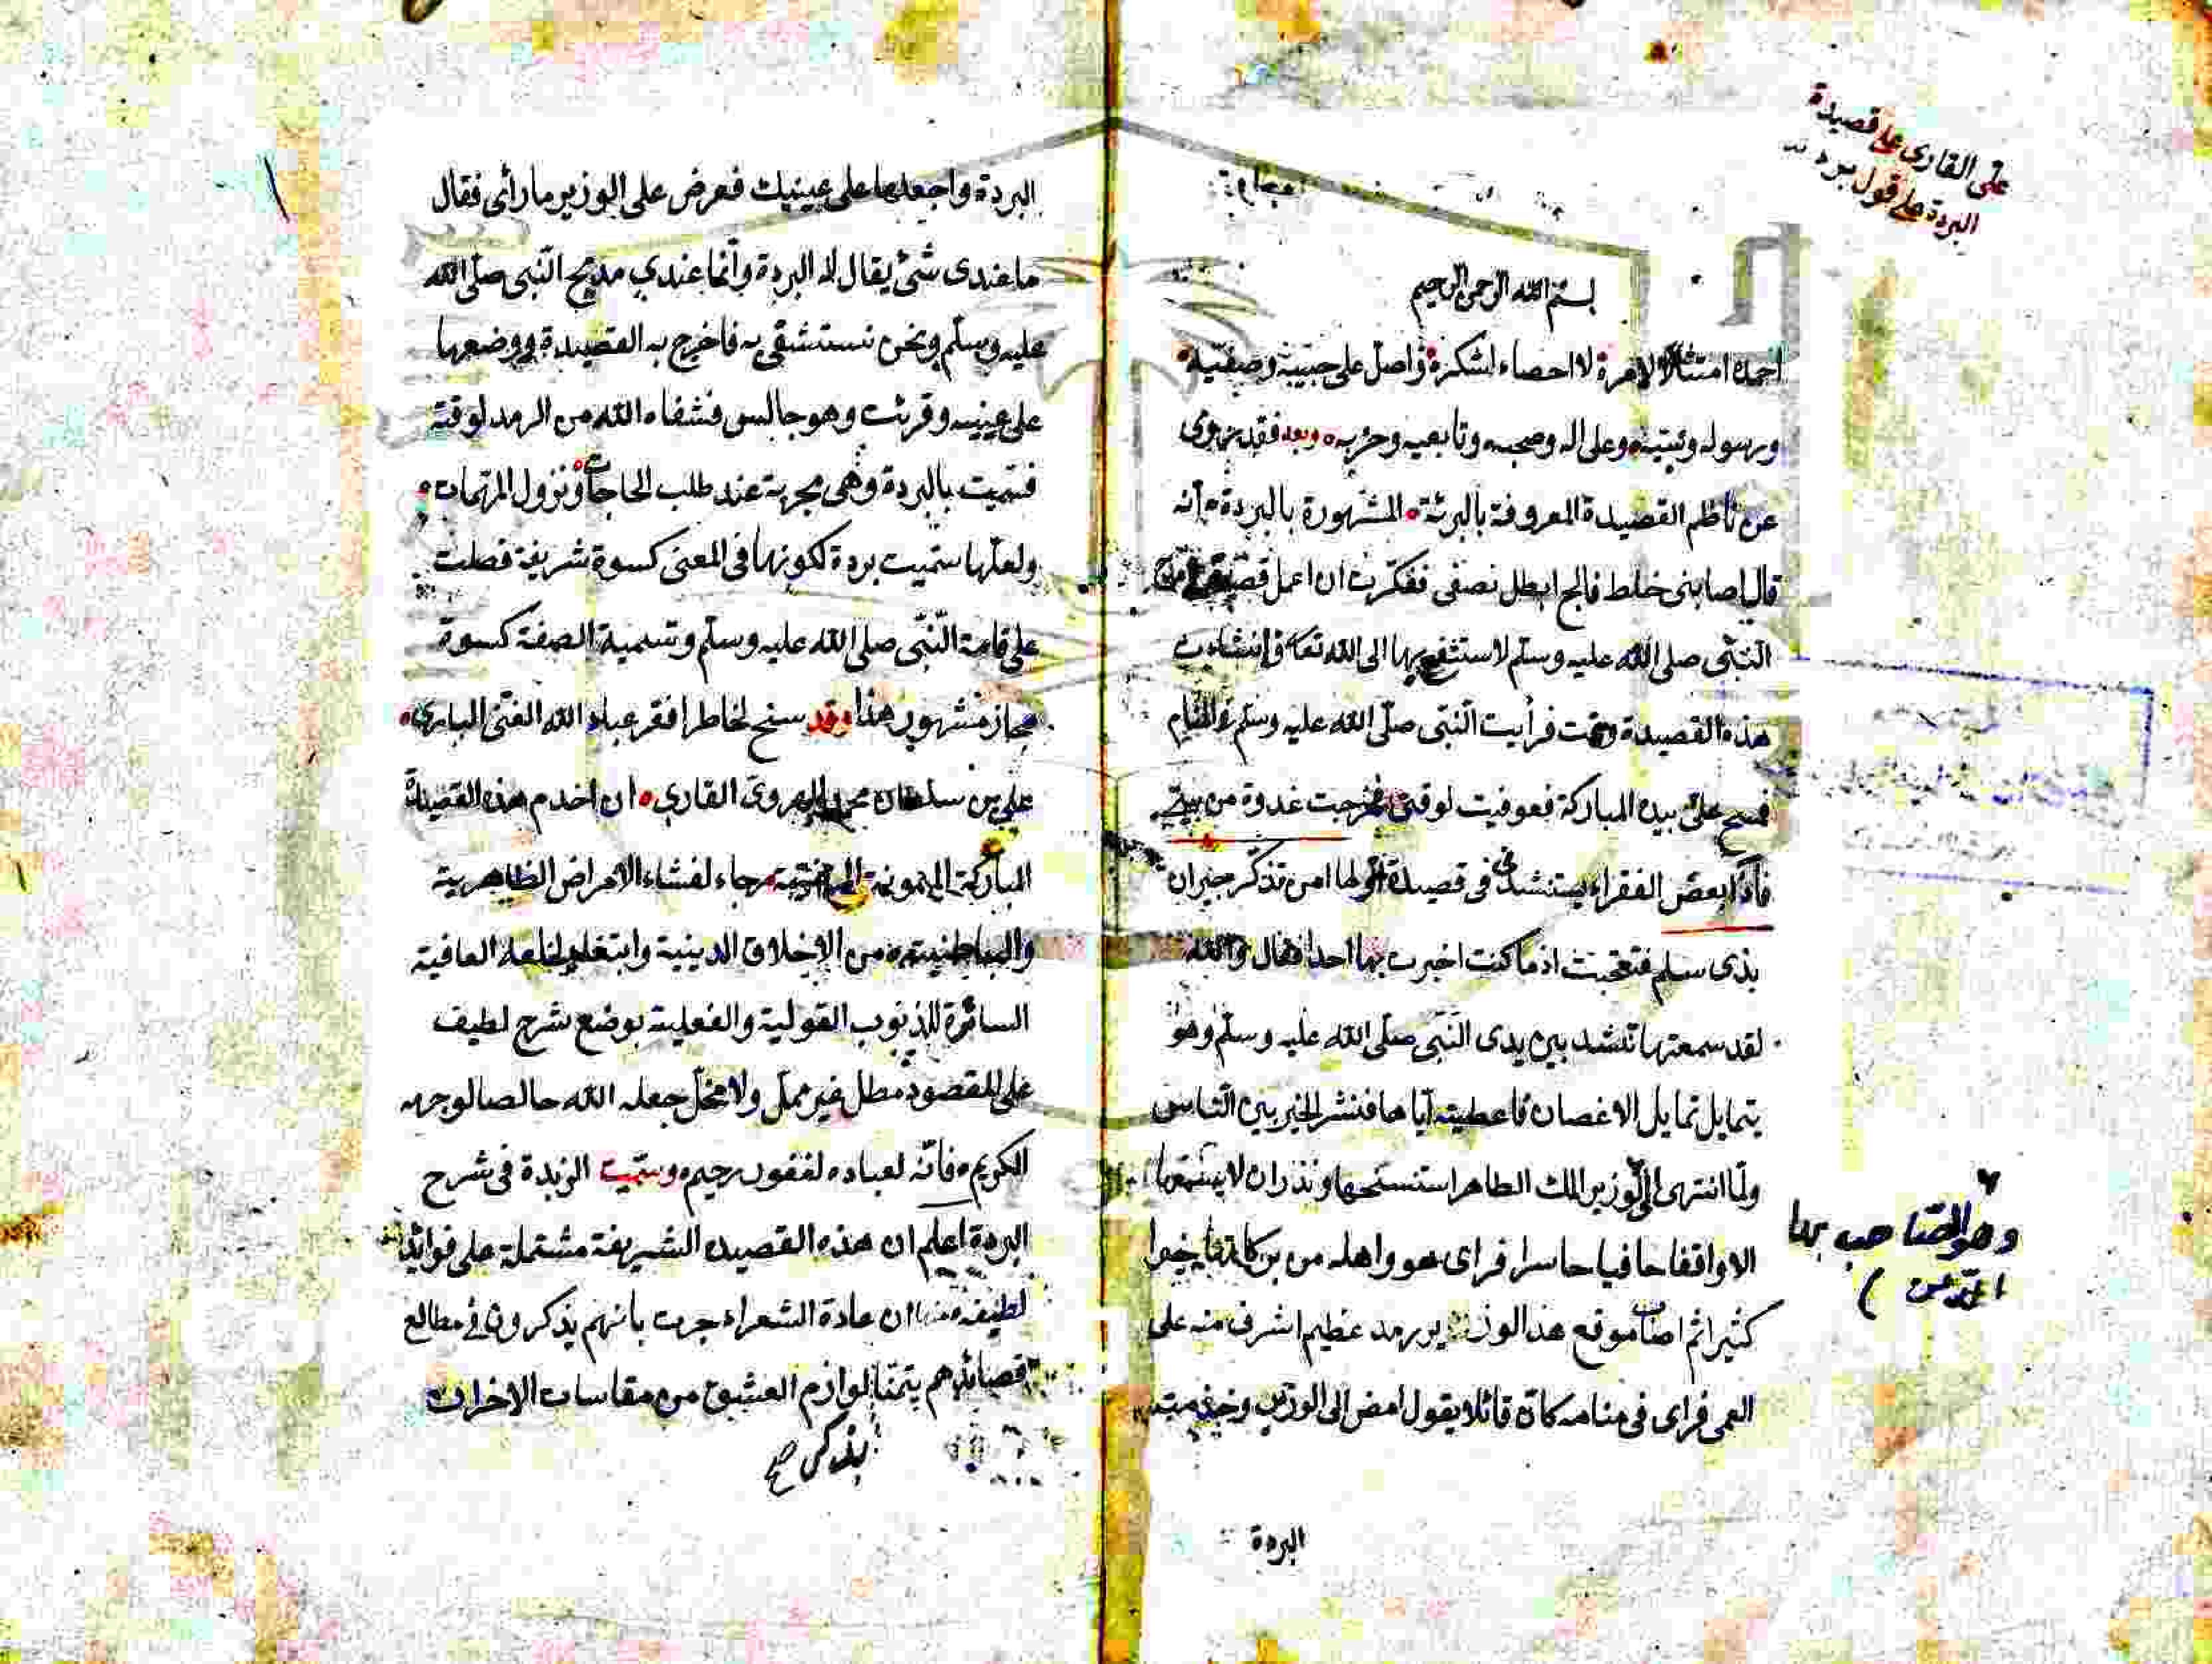 على القارى على قصيدة
البردة على قول بردته
بسم الله الرحمن الرحيم
احمده امتثالا لامره لا احصاء لشكره واصلى على حبيبه وصفيه
ورسوله ونبيه وعلى اله وصحبه وتابعيه وحزبه وبعد فقد روى
عن ناظم القصيدة المعروفة بالبرئة المشهورة بالبردة انه
قال اصابنى خلط فالج ابطل نصفى ففكرت ان اعمل قصيدة
النبى صلى الله عليه وسلم لاستشفع بها الى الله تعا فانشات
هذه القصيدة ونمت فرأيت النبى صلى الله عليه وسلم فى المنام
فمسح على بيده المباركة فعوفيت لوقتى فخرجت غدوة من بيتى
فاذا بعض الفقراء يستنشدنى فى قصيدة اولها امن تذكر جيران
بذى سلم فتعجبت اذ ما كنت اخبرت بها احدا فقال والله
لقد سمعتها تنشد بين يدى النبى صلى الله عليه وسلم وهو
يتمايل تمايل الاغصان فاعطيته اياها فنشر الخبر بين الناس
ولما انتهى الى وزير الملك الطاهر استنسخها ونذر ان لا يسمعها
الا واقفا حافيا حاسرا فراى هو واهله من بركاتها خيرا
كثيرا ثم اصاب موقع هذا الوزير رمد عظيم اشرف منه على
العمى فراى فى منامه كان قائلا يقول امض الى الوزير وخذ منه
وهو الصاحب بها
الدين
البردة
البردة واجعلها على عينيك فعرض على الوزير ما رأى فقال
ما عندى شئ يقال له البردة وانما عندي مديح النبى صلى الله
عليه وسلم ونحن نستشقى به فاخرج به القصيدة ووضعها
على عينيه وقرئت وهو جالس فشفاه الله من الرمد لوقته
فسميت بالبردة وهى مجربة عند طلب الحاجات ونزول المهمات
ولعلها سميت بردة لكونها فى المعنى كسوة شريفة فصلت
على قامة النبى صلى الله عليه وسلم وتسمية الصفة كسوة
مجاز مشهور هذا وقد سنح لخاطر افقر عباد الله الغنى البارى
على بن سلطان محمد الهروى القارى ان اخدم هذه القصيدة
المباركة الميمونة رجاء لفشاء الامراض الظاهرية
والباطنية من الاخلاق الدينية وابتغاء لخلعة العافية
الساترة للذنوب القولية والفعلية بوضع شرح لطيف
على المقصود مطل غير ممل ولا مخل جعله الله خالصا لوجهه
الكريم فانه لعباده لغفور رحيم وسميت الزبدة فى شرح
البردة اعلم ان هذه القصيده الشريفة مشتملة على فوائد
لطيفة منها ان عادة الشعراء جرت بانهم يذكرون فى مطالع
قصائدهم يتمنا لوازم العشق من مقاسات الاخران
بذكر